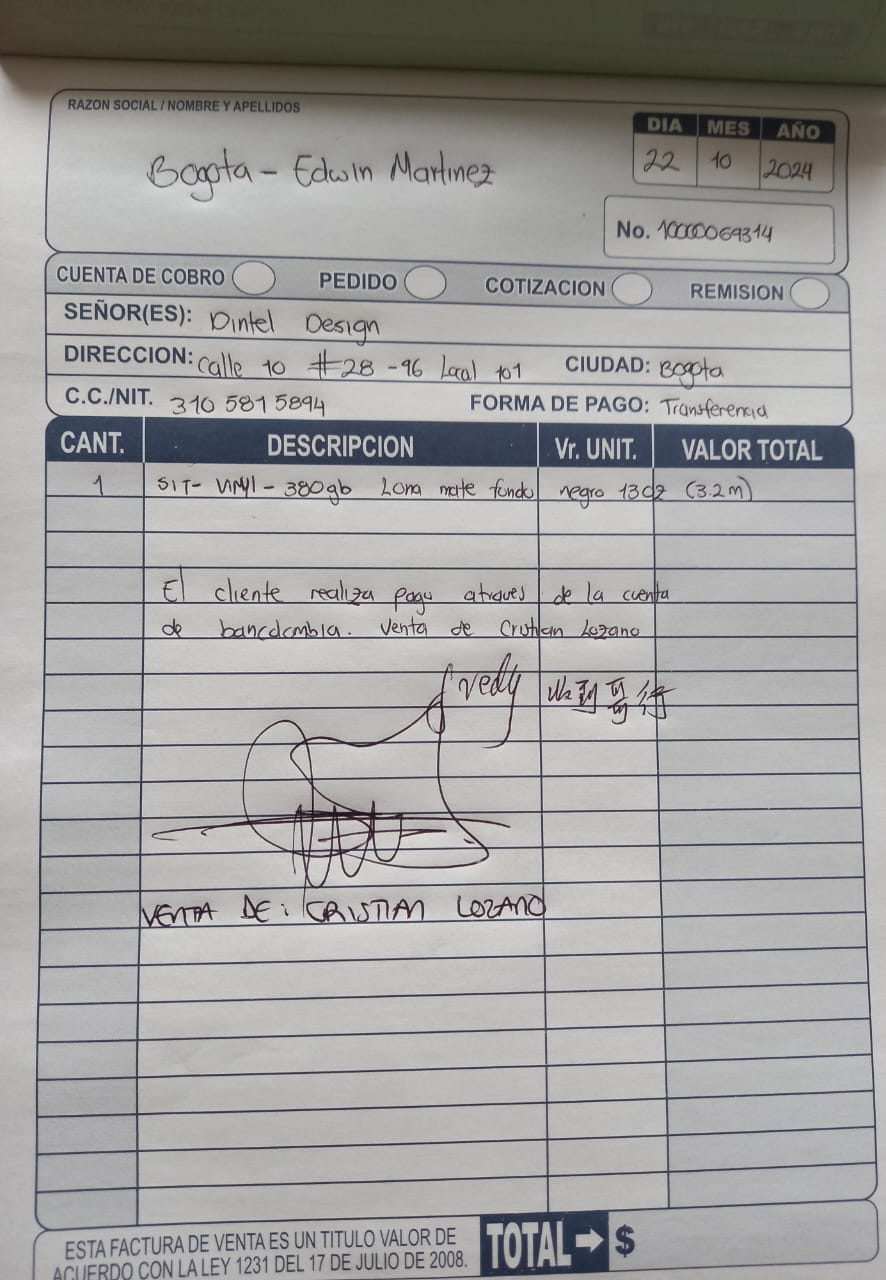 RAZON SOCIAL / NOMBRE Y APELLIDOS
DIA MES AÑO
Bogota - Edwin Martinez
22 10 2024
No. 10000069314
CUENTA DE COBRO PEDIDO COTIZACION REMISION
SEÑOR(ES): Dintel Design
DIRECCION: Calle 10 #28-96 Local 101 CIUDAD: Bogota
C.C./NIT. 310 581 5894 FORMA DE PAGO: Transferencia
CANT. DESCRIPCION Vr. UNIT. VALOR TOTAL
1 SIT- VINYl - 380gb Lona mate fondo negro 13oz (3.2m)
El cliente realiza pago atraves de la cuenta
de bancolombia. Venta de Cristian Lozano
fredy
VENTA DE: CRISTIAN LOZANO
ESTA FACTURA DE VENTA ES UN TITULO VALOR DE
ACUERDO CON LA LEY 1231 DEL 17 DE JULIO DE 2008.
TOTAL → $